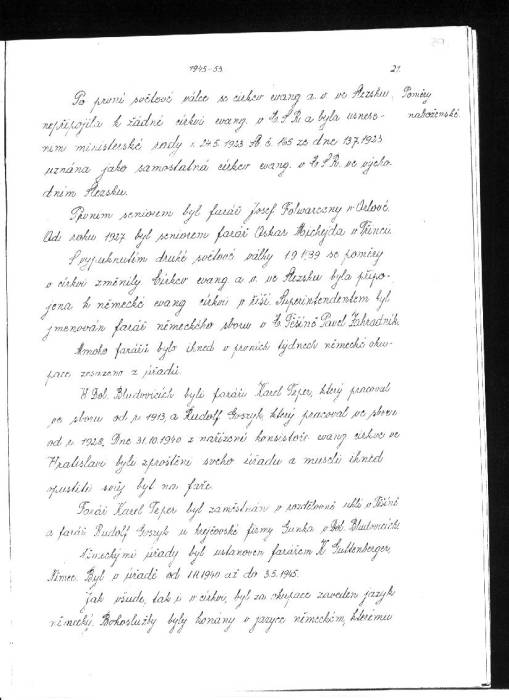 1945-53. 21.
Po první světové válce se církev evang. a. v. ve Slezsku Poměry
nepřipojila k žádné církvi evang. v Č.S.R. a byla usnese- náboženské.
ním ministerské rady z 24.5. 1923 Sb. č. 165 ze dne 13.7.1923
uznána jako samostatná církev evang. v Č.S.R. ve východ-
dním Slezsku.
Prvním seniorem byl farář Josef Folwarczny v Orlové.
Od roku 1927 byl seniorem farář Oskar Michejda v Třinci.
S vypuknutím druhé světové války 1.9.1939 se poměry
v církvi změnily. Církev evang. a. v. ve Slezsku byla připo-
jena k německé evang. církvi v říši. Superintendentem byl
jmenován farář německého sboru v Č. Těšíně Pavel Zahradník.
Mnoho farářů bylo ihned v prvních týdnech německé oku-
pace zesazeno z úřadu.
V Dol. Bludovicích byli faráři Karel Teper, který pracoval
ve sboru od r. 1913, a Rudolf Goszyk, který pracoval ve sboru
od r. 1928. Dne 31.10.1940 z nařízení konsistoře evang. církve ve
Vratislavi byli zproštěni svého úřadu a museli ihned
opustiti svůj byt na faře.
Farář Karel Teper byl zaměstnán v rozdělovně uhlí v Těšíně
a farář Rudolf Goszyk u krejčovské firmy Gunka v Dol. Bludovicích.
Německými úřady byl ustanoven farářem K. Guttenberger,
Němec. Byl v úřadě od 1.11.1940 až do 3.5.1945.
Jak všude, tak i v církvi, byl za okupace zaveden jazyk
německý. Bohoslužby byly konány v jazyce německém, kterému